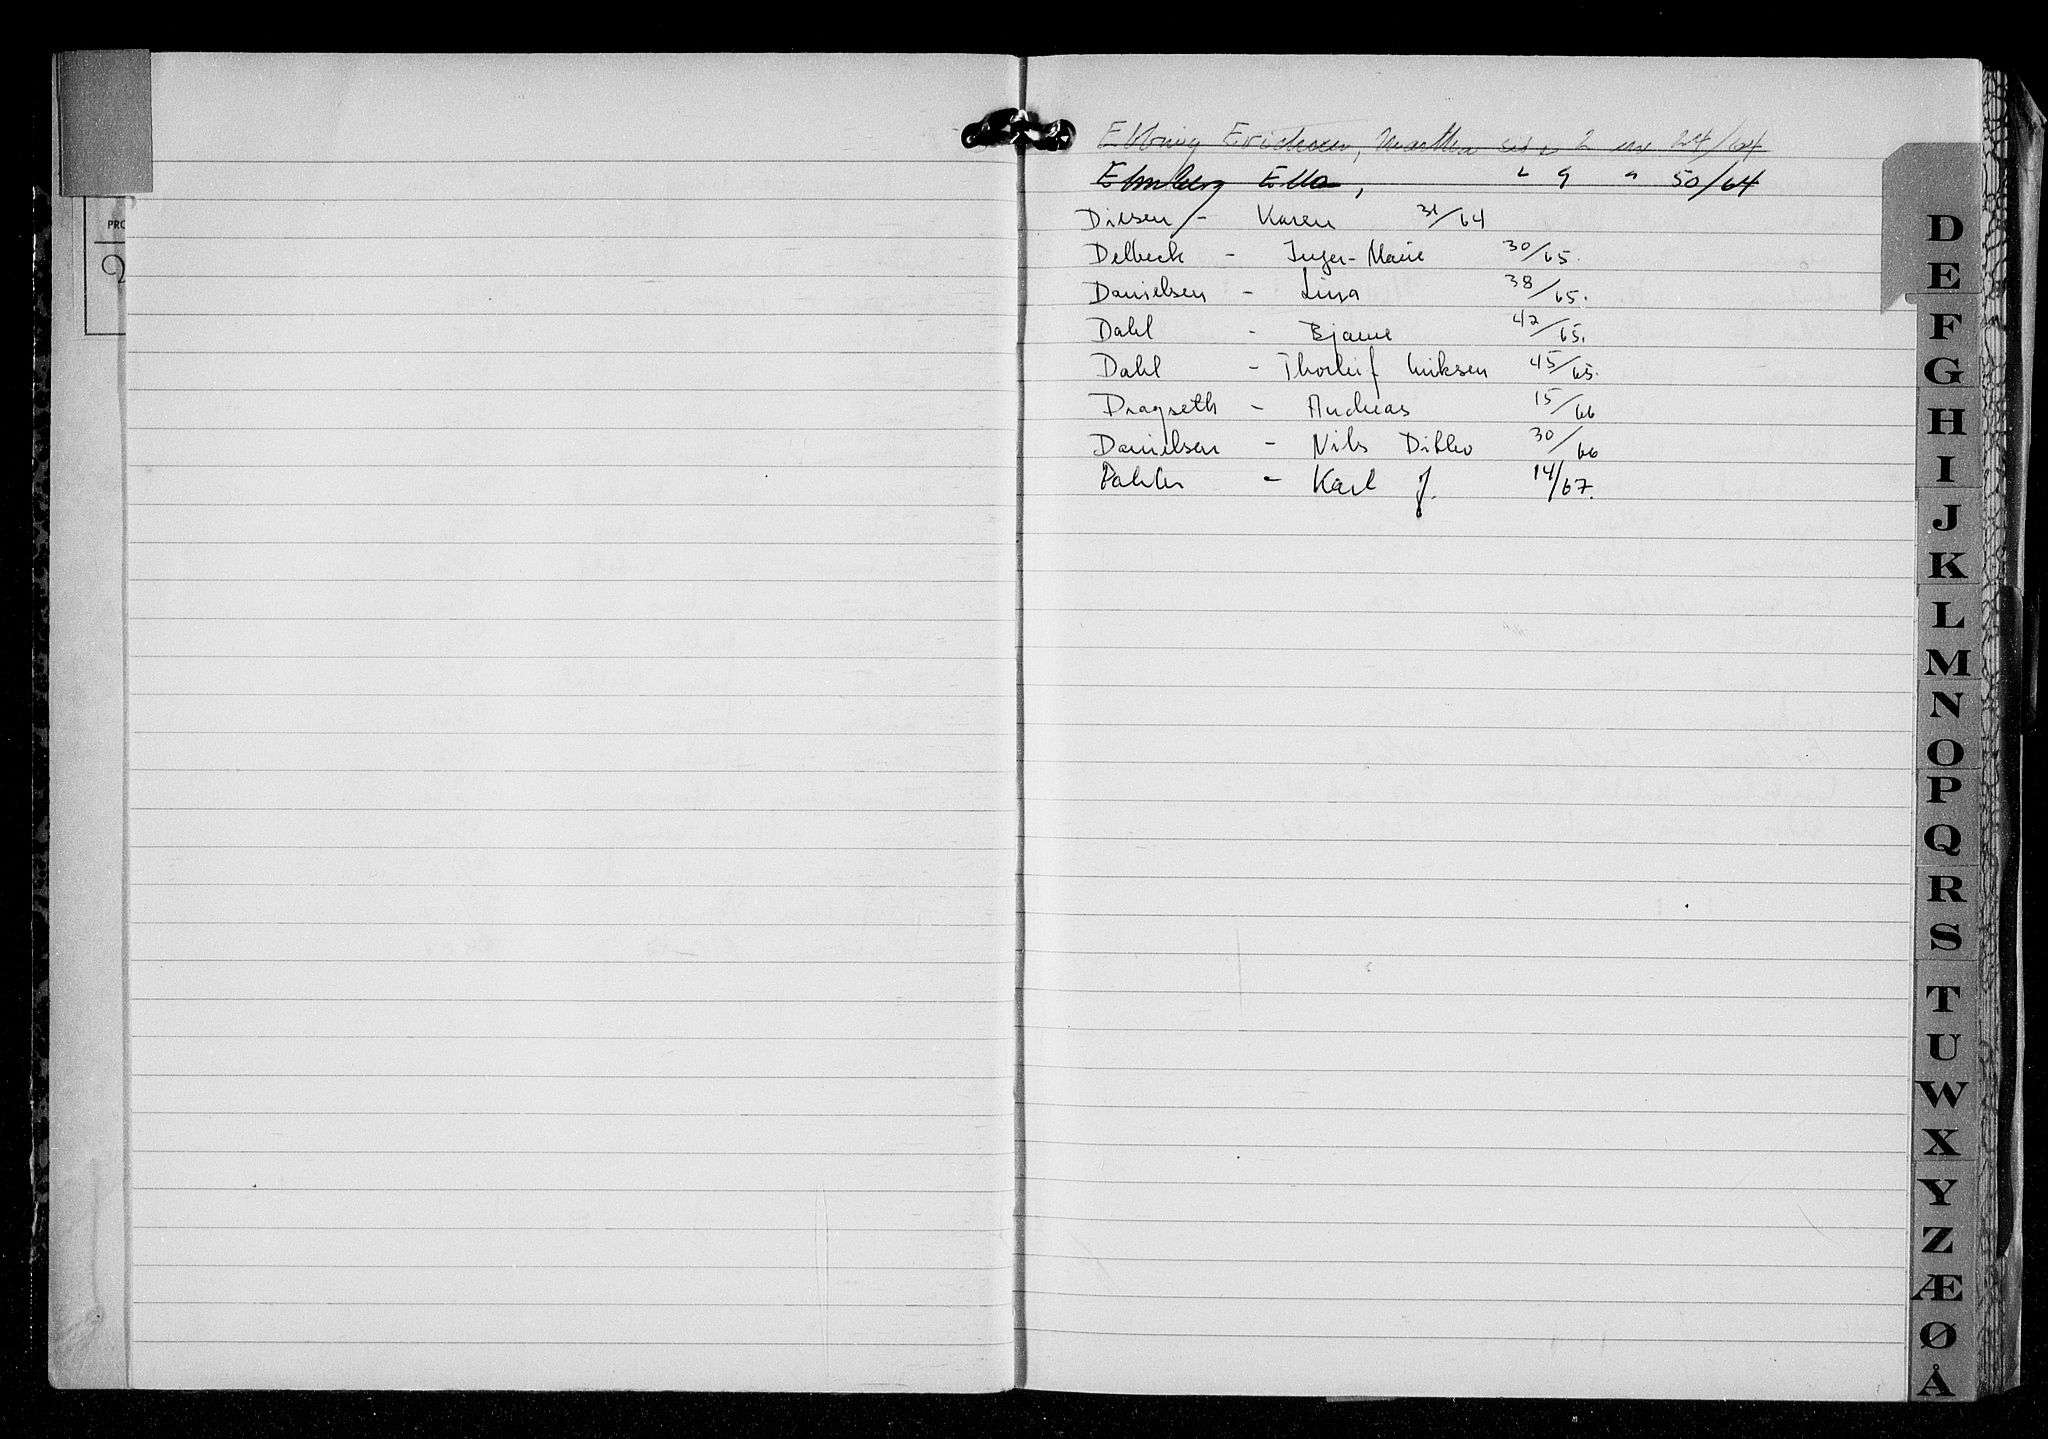 PRO
Ebbing Erichsen, Martha sid 2 nr 24/64
Elmberg Ella, " 9 " 50/64
Diesen - Karen 31/64
Delbeck - Inger-Marie 30/65.
Danielsen - Lina 38/65.
Dahl - Bjarne 42/65.
Dahl - Thorleif Eriksen 45/65.
Dragseth - Andreas 15/66
Danielsen - Nils Ditlev 30/66
Dahler - Karl J. 14/67.
D
E
F
G
H
I
J
K
L
M
N
O
P
Q
R
S
T
U
W
X
Y
Z
Æ
Ø
Å